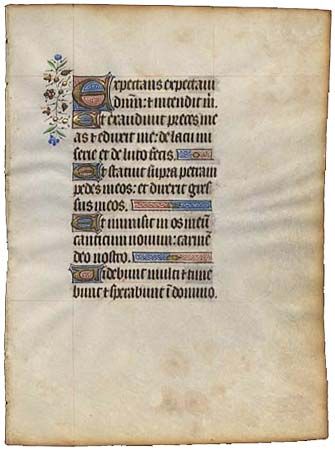 Expectans expectaui
dnm: et intendit m.
Et exaudiuit preces me
as et eduxit me: de lacu mi
serie et de luto fecis.
Et statuit supra petram
pedes meos: et direxit gres
sus meos.
Et inmisit in os meū
canticum nouum: carmē
deo nostro.
Uidebunt multi et time
bunt et sperabunt ī domino.